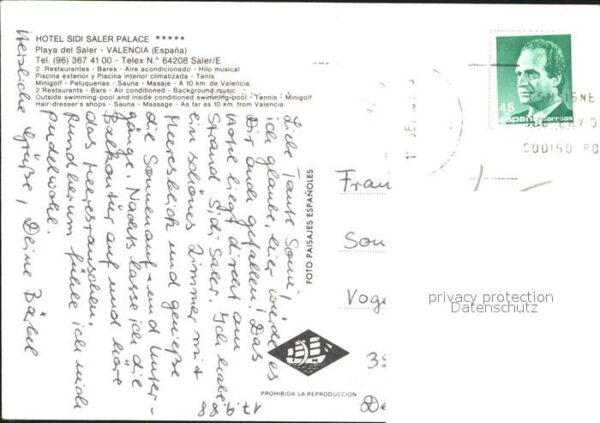 HOTEL SIDI SALER PALACE *****
Playa del Saler - VALENCIA (España)
Tel. (96) 367 41 00 - Telex N.° 64208 Saler/E
2 Restaurantes - Bares - Aire acondicionado - Hilo musical
Piscina exterior y Piscina interior climatizada - Tenis
Minigolf - Peluquerias - Sauna - Masaje - A 10 km de Valencia
2 Restaurants - Bars - Air conditioned - Background music
Outside swimming-pool and inside conditioned swimming-pool - Tennis - Minigolf
Hair-dresser's shops - Sauna - Massage - As far as 10 km. from Valencia.
17.9.88
Liebe Tante Sonni!
ich glaube, hier würde es
Dir auch gefallen! Das
Hotel liegt direkt am
Strand Sidi Saler. Ich habe
ein schönes Zimmer mit
Meeresblick und genieße
die Sonnenauf- und Unter-
gänge. Nachts lasse ich die
Balkontür auf und höre
das Meeresrauschen.
Rundherum fühle ich mich
pudelwohl.
Herzliche Grüße, Deine Bärbel
FOTO PAISAJES ESPAÑOLES
PROHIBIDA LA REPRODUCCION
45
españa
correos
CODIGO PO
Frau
Son
Voge
privacy protection
Datenschutz